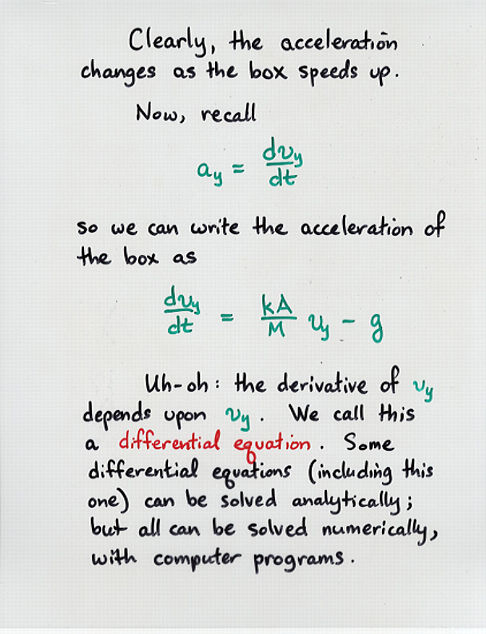 Clearly, the acceleration
changes as the box speeds up.
Now, recall
a_y = dv_y/dt
so we can write the acceleration of
the box as
dv_y/dt = kA/M v_y - g
Uh-oh: the derivative of v_y
depends upon v_y. We call this
a differential equation. Some
differential equations (including this
one) can be solved analytically;
but all can be solved numerically,
with computer programs.